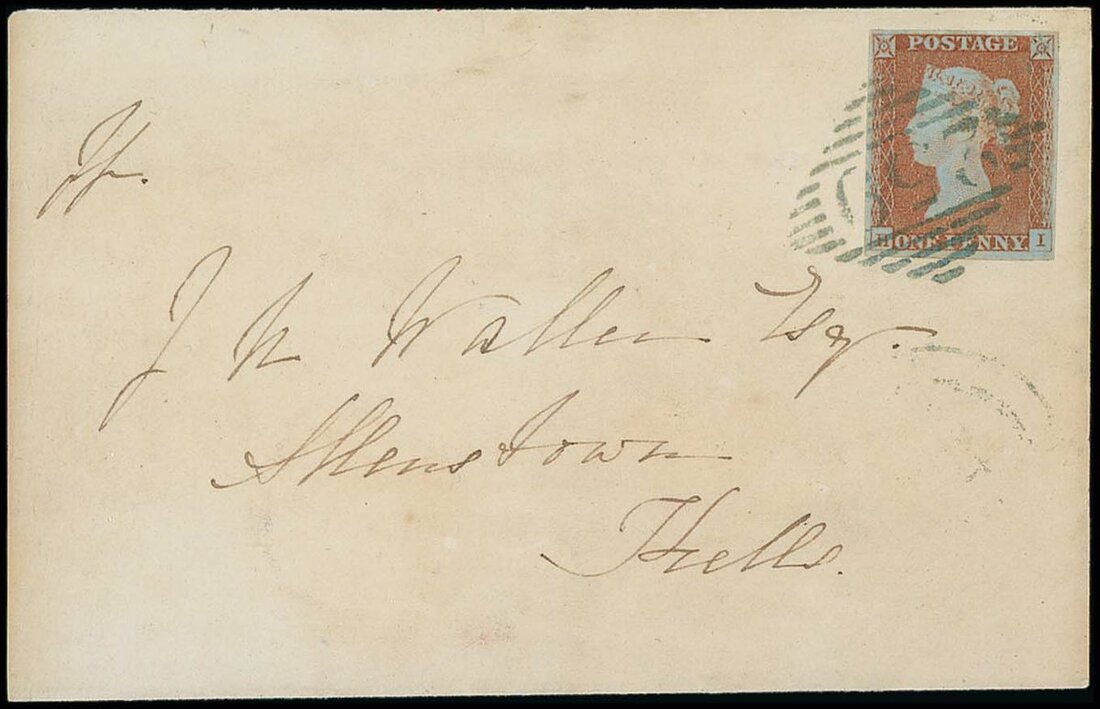 POSTAGE
H ONE PENNY I
J N Waller Esqr.
Allenstown
Kells.